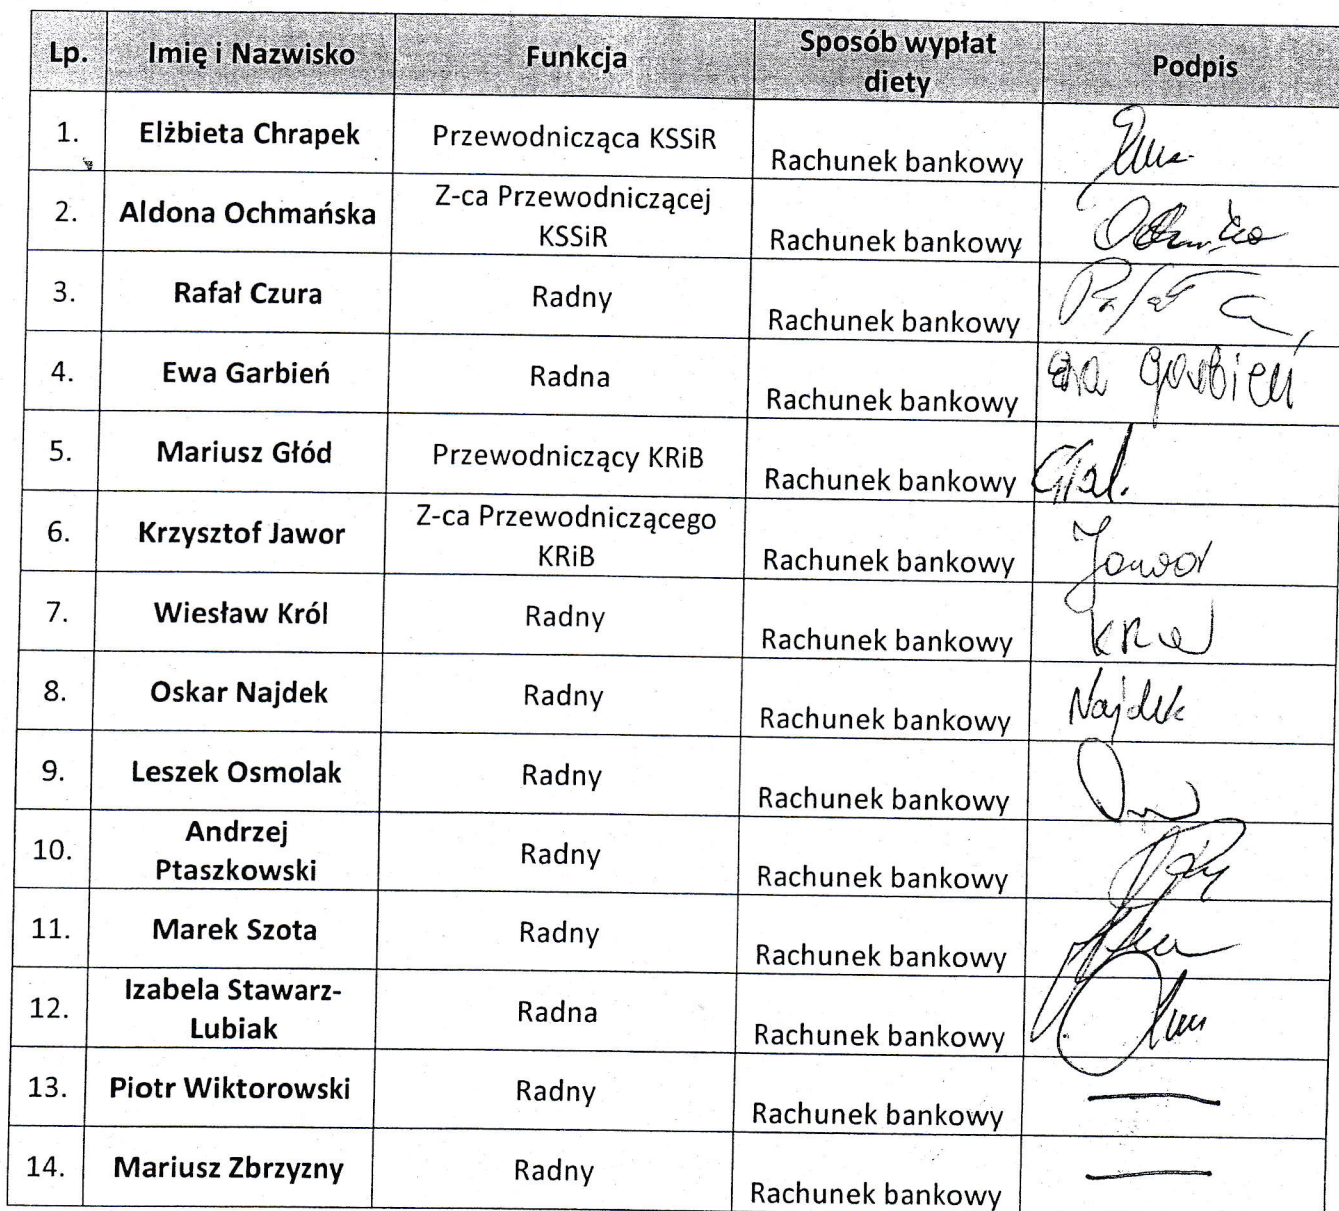 Lp. Imię i Nazwisko Funkcja Sposób wypłat diety Podpis
1. Elżbieta Chrapek Przewodnicząca KSSiR Rachunek bankowy
2. Aldona Ochmańska Z-ca Przewodniczącej KSSiR Rachunek bankowy
3. Rafał Czura Radny Rachunek bankowy Rafał C
4. Ewa Garbień Radna Rachunek bankowy Ewa Garbień
5. Mariusz Głód Przewodniczący KRiB Rachunek bankowy
6. Krzysztof Jawor Z-ca Przewodniczącego KRiB Rachunek bankowy Jawor
7. Wiesław Król Radny Rachunek bankowy
8. Oskar Najdek Radny Rachunek bankowy Najdek
9. Leszek Osmolak Radny Rachunek bankowy
10. Andrzej Ptaszkowski Radny Rachunek bankowy
11. Marek Szota Radny Rachunek bankowy
12. Izabela Stawarz-Lubiak Radna Rachunek bankowy
13. Piotr Wiktorowski Radny Rachunek bankowy —
14. Mariusz Zbrzyzny Radny Rachunek bankowy —